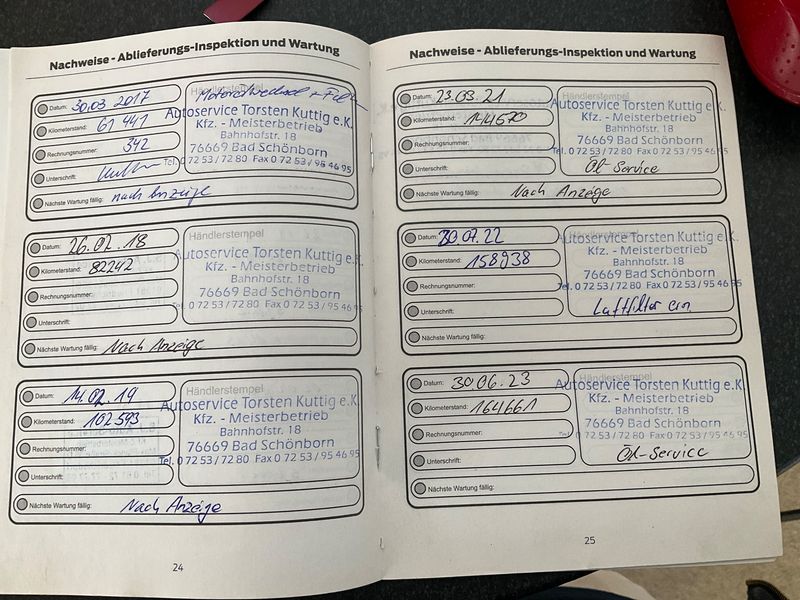 Nachweise - Ablieferungs-Inspektion und Wartung
Datum: 30.03 2017
Kilometerstand: 61 441
Rechnungsnummer: 342
Unterschrift:
Nächste Wartung fällig: nach Anzeige
Händlerstempel
Motorölwechsel +
Autoservice Torsten Kuttig e.K.
Kfz. - Meisterbetrieb
Bahnhofstr. 18
76669 Bad Schönborn
Tel. 0 72 53 / 72 80 Fax 0 72 53 / 95 46 95
Datum: 26.02.18
Kilometerstand: 82242
Rechnungsnummer:
Unterschrift:
Nächste Wartung fällig: Nach Anzeige
Händlerstempel
Autoservice Torsten Kuttig e.K.
Kfz. - Meisterbetrieb
Bahnhofstr. 18
76669 Bad Schönborn
Tel. 0 72 53 / 72 80 Fax 0 72 53 / 95 46 95
Datum: 14.02.19
Kilometerstand: 102593
Rechnungsnummer:
Unterschrift:
Nächste Wartung fällig: Nach Anzeige
Händlerstempel
Autoservice Torsten Kuttig e.K.
Kfz. - Meisterbetrieb
Bahnhofstr. 18
76669 Bad Schönborn
Tel. 0 72 53 / 72 80 Fax 0 72 53 / 95 46 95
24
Nachweise - Ablieferungs-Inspektion und Wartung
Datum: 23.03.21
Kilometerstand: 144670
Rechnungsnummer:
Unterschrift:
Nächste Wartung fällig: Nach Anzeige
Händlerstempel
Autoservice Torsten Kuttig e.K.
Kfz. - Meisterbetrieb
Bahnhofstr. 18
76669 Bad Schönborn
Tel. 0 72 53 / 72 80 Fax 0 72 53 / 95 46 95
Öl-Service
Datum: 20.07.22
Kilometerstand: 158938
Rechnungsnummer:
Unterschrift:
Nächste Wartung fällig:
Händlerstempel
Autoservice Torsten Kuttig e.K.
Kfz. - Meisterbetrieb
Bahnhofstr. 18
76669 Bad Schönborn
Tel. 0 72 53 / 72 80 Fax 0 72 53 / 95 46 95
Luftfilter ern
Datum: 30.06.23
Kilometerstand: 164661
Rechnungsnummer:
Unterschrift:
Nächste Wartung fällig:
Händlerstempel
Autoservice Torsten Kuttig e.K.
Kfz. - Meisterbetrieb
Bahnhofstr. 18
76669 Bad Schönborn
Tel. 0 72 53 / 72 80 Fax 0 72 53 / 95 46 95
Öl-Service
25